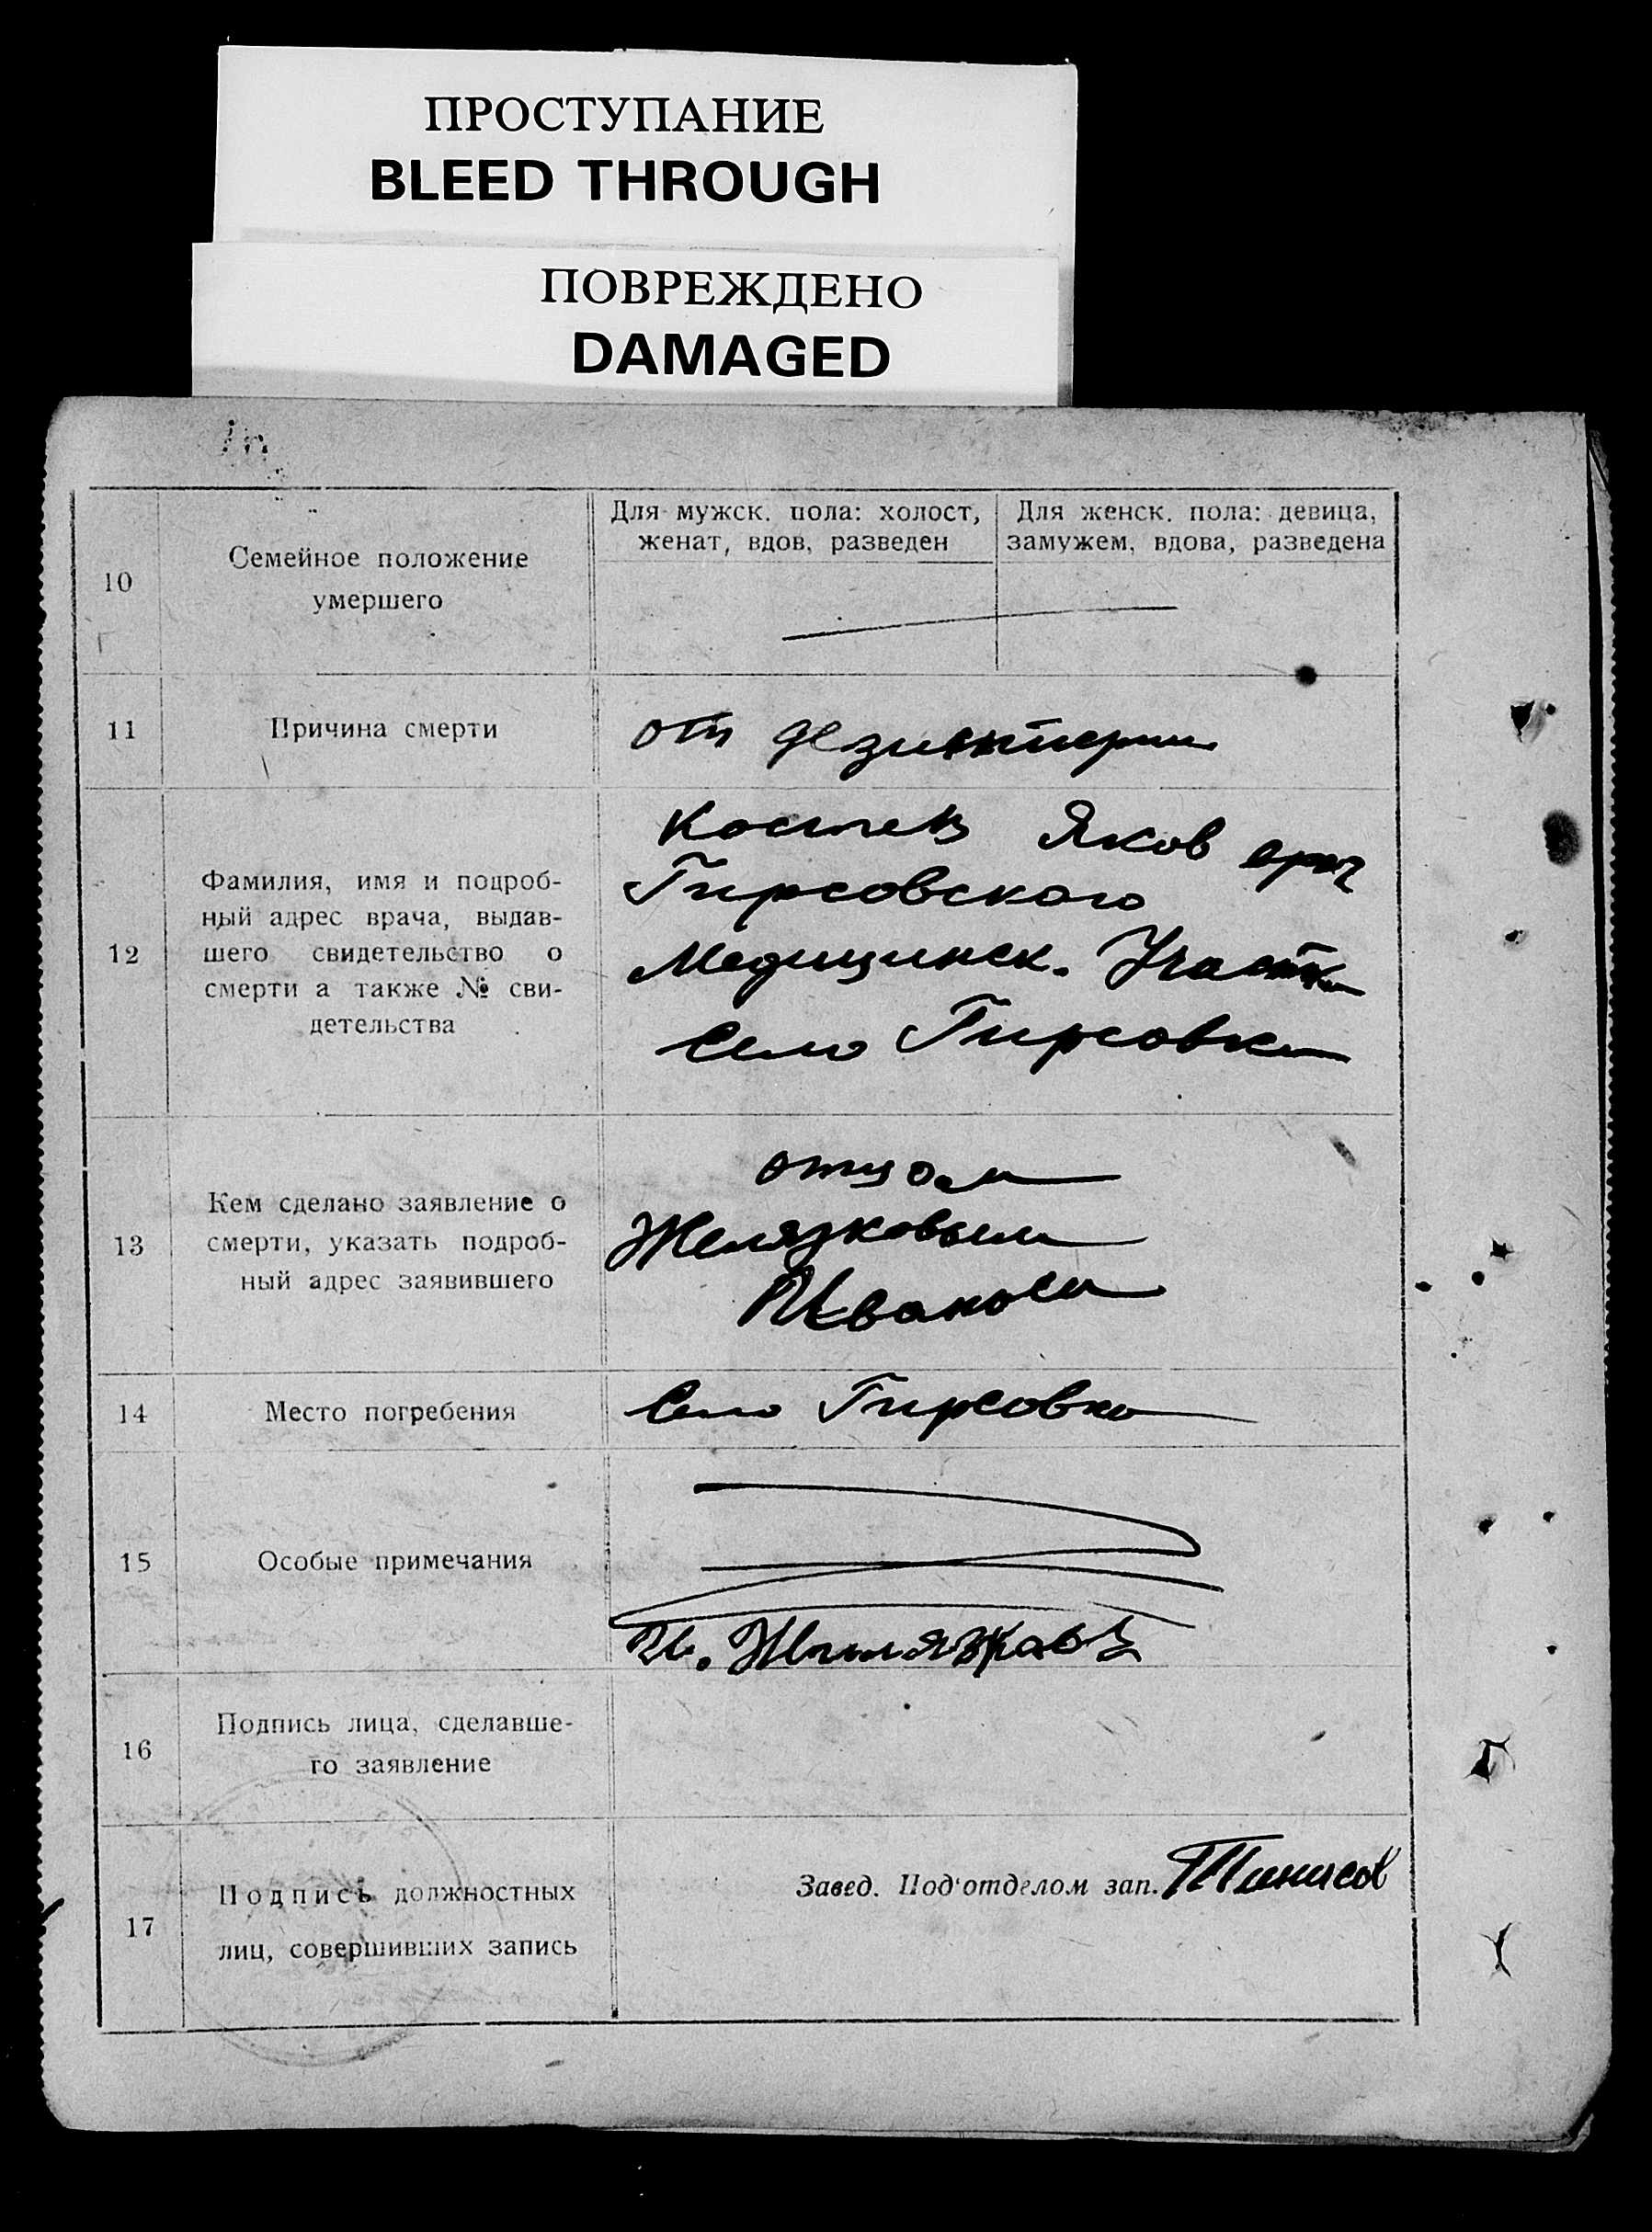 ПРОСТУПАНИЕ
BLEED THROUGH
ПОВРЕЖДЕНО
DAMAGED
10
Семейное положение
умершего
Для мужск. пола: холост,
женат, вдов, разведен
Для женск. пола: девица,
замужем, вдова, разведена
11
Причина смерти
от дезинтерии
12
Фамилия, имя и подроб-
ный адрес врача, выдав-
шего свидетельство о
смерти а также № сви-
детельства
Яков врач
Гирсовского
Медицинск. Участка
Село Гирсовка
13
Кем сделано заявление о
смерти, указать подроб-
ный адрес заявившего
отцом
Желязковым
Иваном
14
Место погребения
Село Гирсовка
15
Особые примечания
И.
16
Подпись лица, сделавше-
го заявление
17
Подпись должностных
лиц, совершивших запись
Завед. Под'отделом зап.